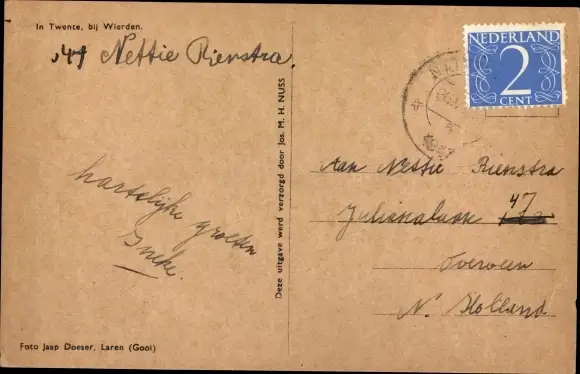 In Twente, bij Wierden.
Nettie Rienstra.
hartelijke groeten
Ineke.
Foto Jaap Doeser, Laren (Gooi)
Deze uitgave werd verzorgd door Jos. M. H. NUSS
NEDERLAND
2
CENT
Aan Nettie Rienstra
Julianalaan 47
Overveen
N. Holland